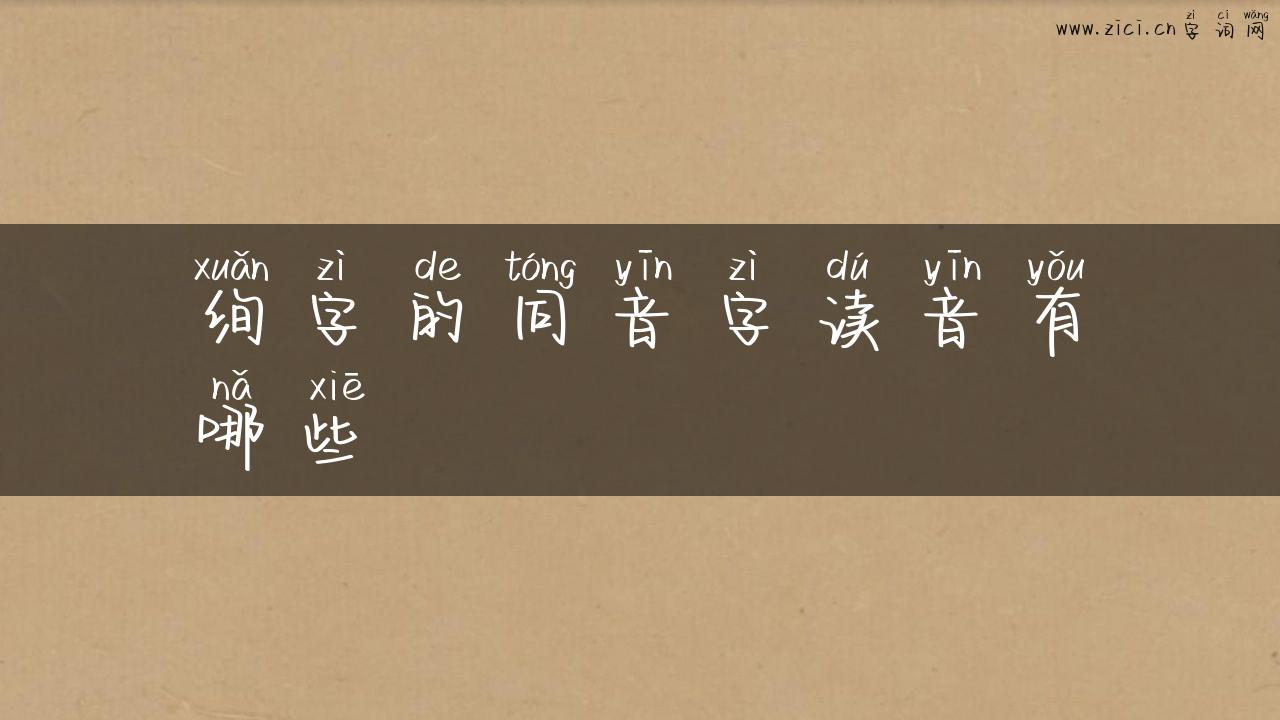 zì cí wǎng
www.zici.cn 字词网
xuǎn zì de tóng yīn zì dú yīn yǒu
绚字的同音字读音有
nǎ xiē
哪些